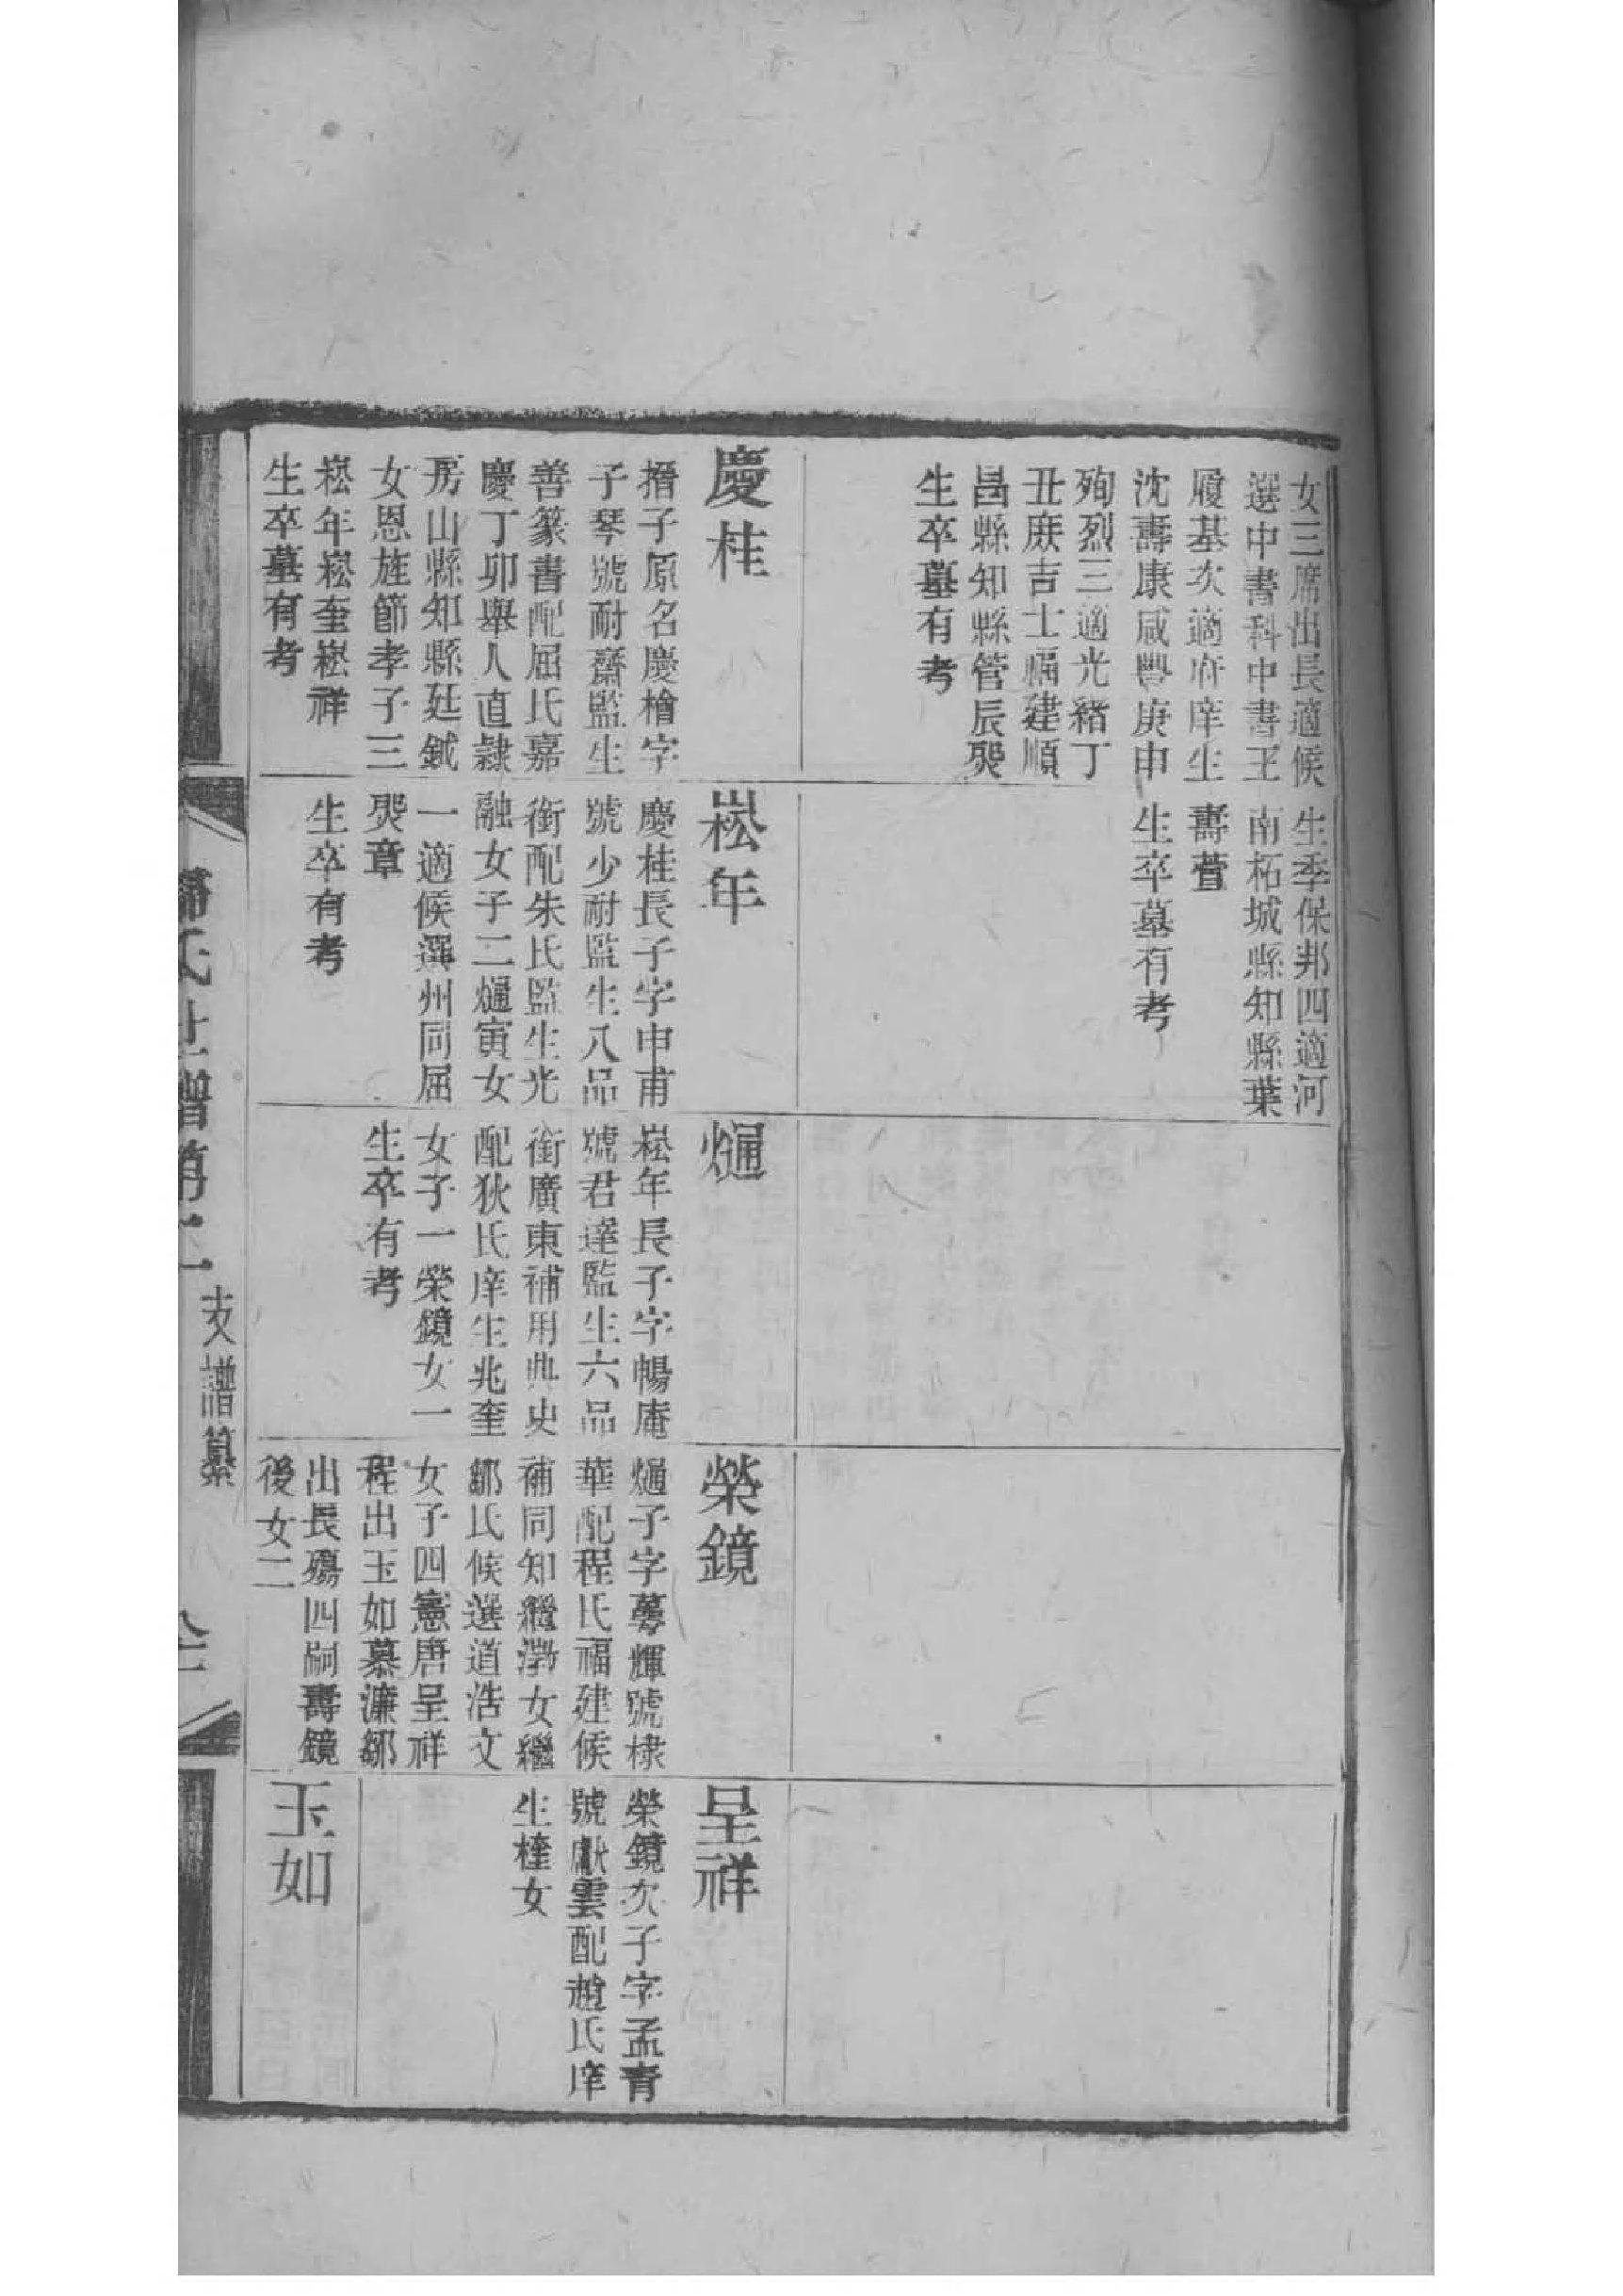 女三席出長適候
選中書科中書王
履基次適府庠生
沈壽康咸豐庚申
殉烈三適光緒丁
丑庶吉士福建順
昌縣知縣管辰熒
生卒墓有考
慶桂
搢子原名慶檜字
子琴號耐齋監生
善篆書配屈氏嘉
慶丁卯舉人直隸
房山縣知縣廷鉞
女恩旌節孝子三
崧年崧奎崧祥
生卒墓有考
生季保邦四適河
南柘城縣知縣葉
壽萱
生卒墓有考
崧年
慶桂長子字申甫
號少耐監生八品
銜配朱氏監生光
融女子二熥寅女
一適候選州同屈
熒章
生卒有考
熥
崧年長子字暢庵
號君達監生六品
銜廣東補用典史
配狄氏庠生兆奎
女子一榮鏡女一
生卒有考
榮鏡
熥子字蕚輝號棣
華配程氏福建候
補同知繼澇女繼
鄒氏候選道浩文
女子四憲唐呈祥
程出玉如慕濂鄒
出長殤四嗣壽鏡
後女二
呈祥
榮鏡次子字孟青
號獻雲配趙氏庠
生楏女
玉如
氏世譜第二
支譜纂